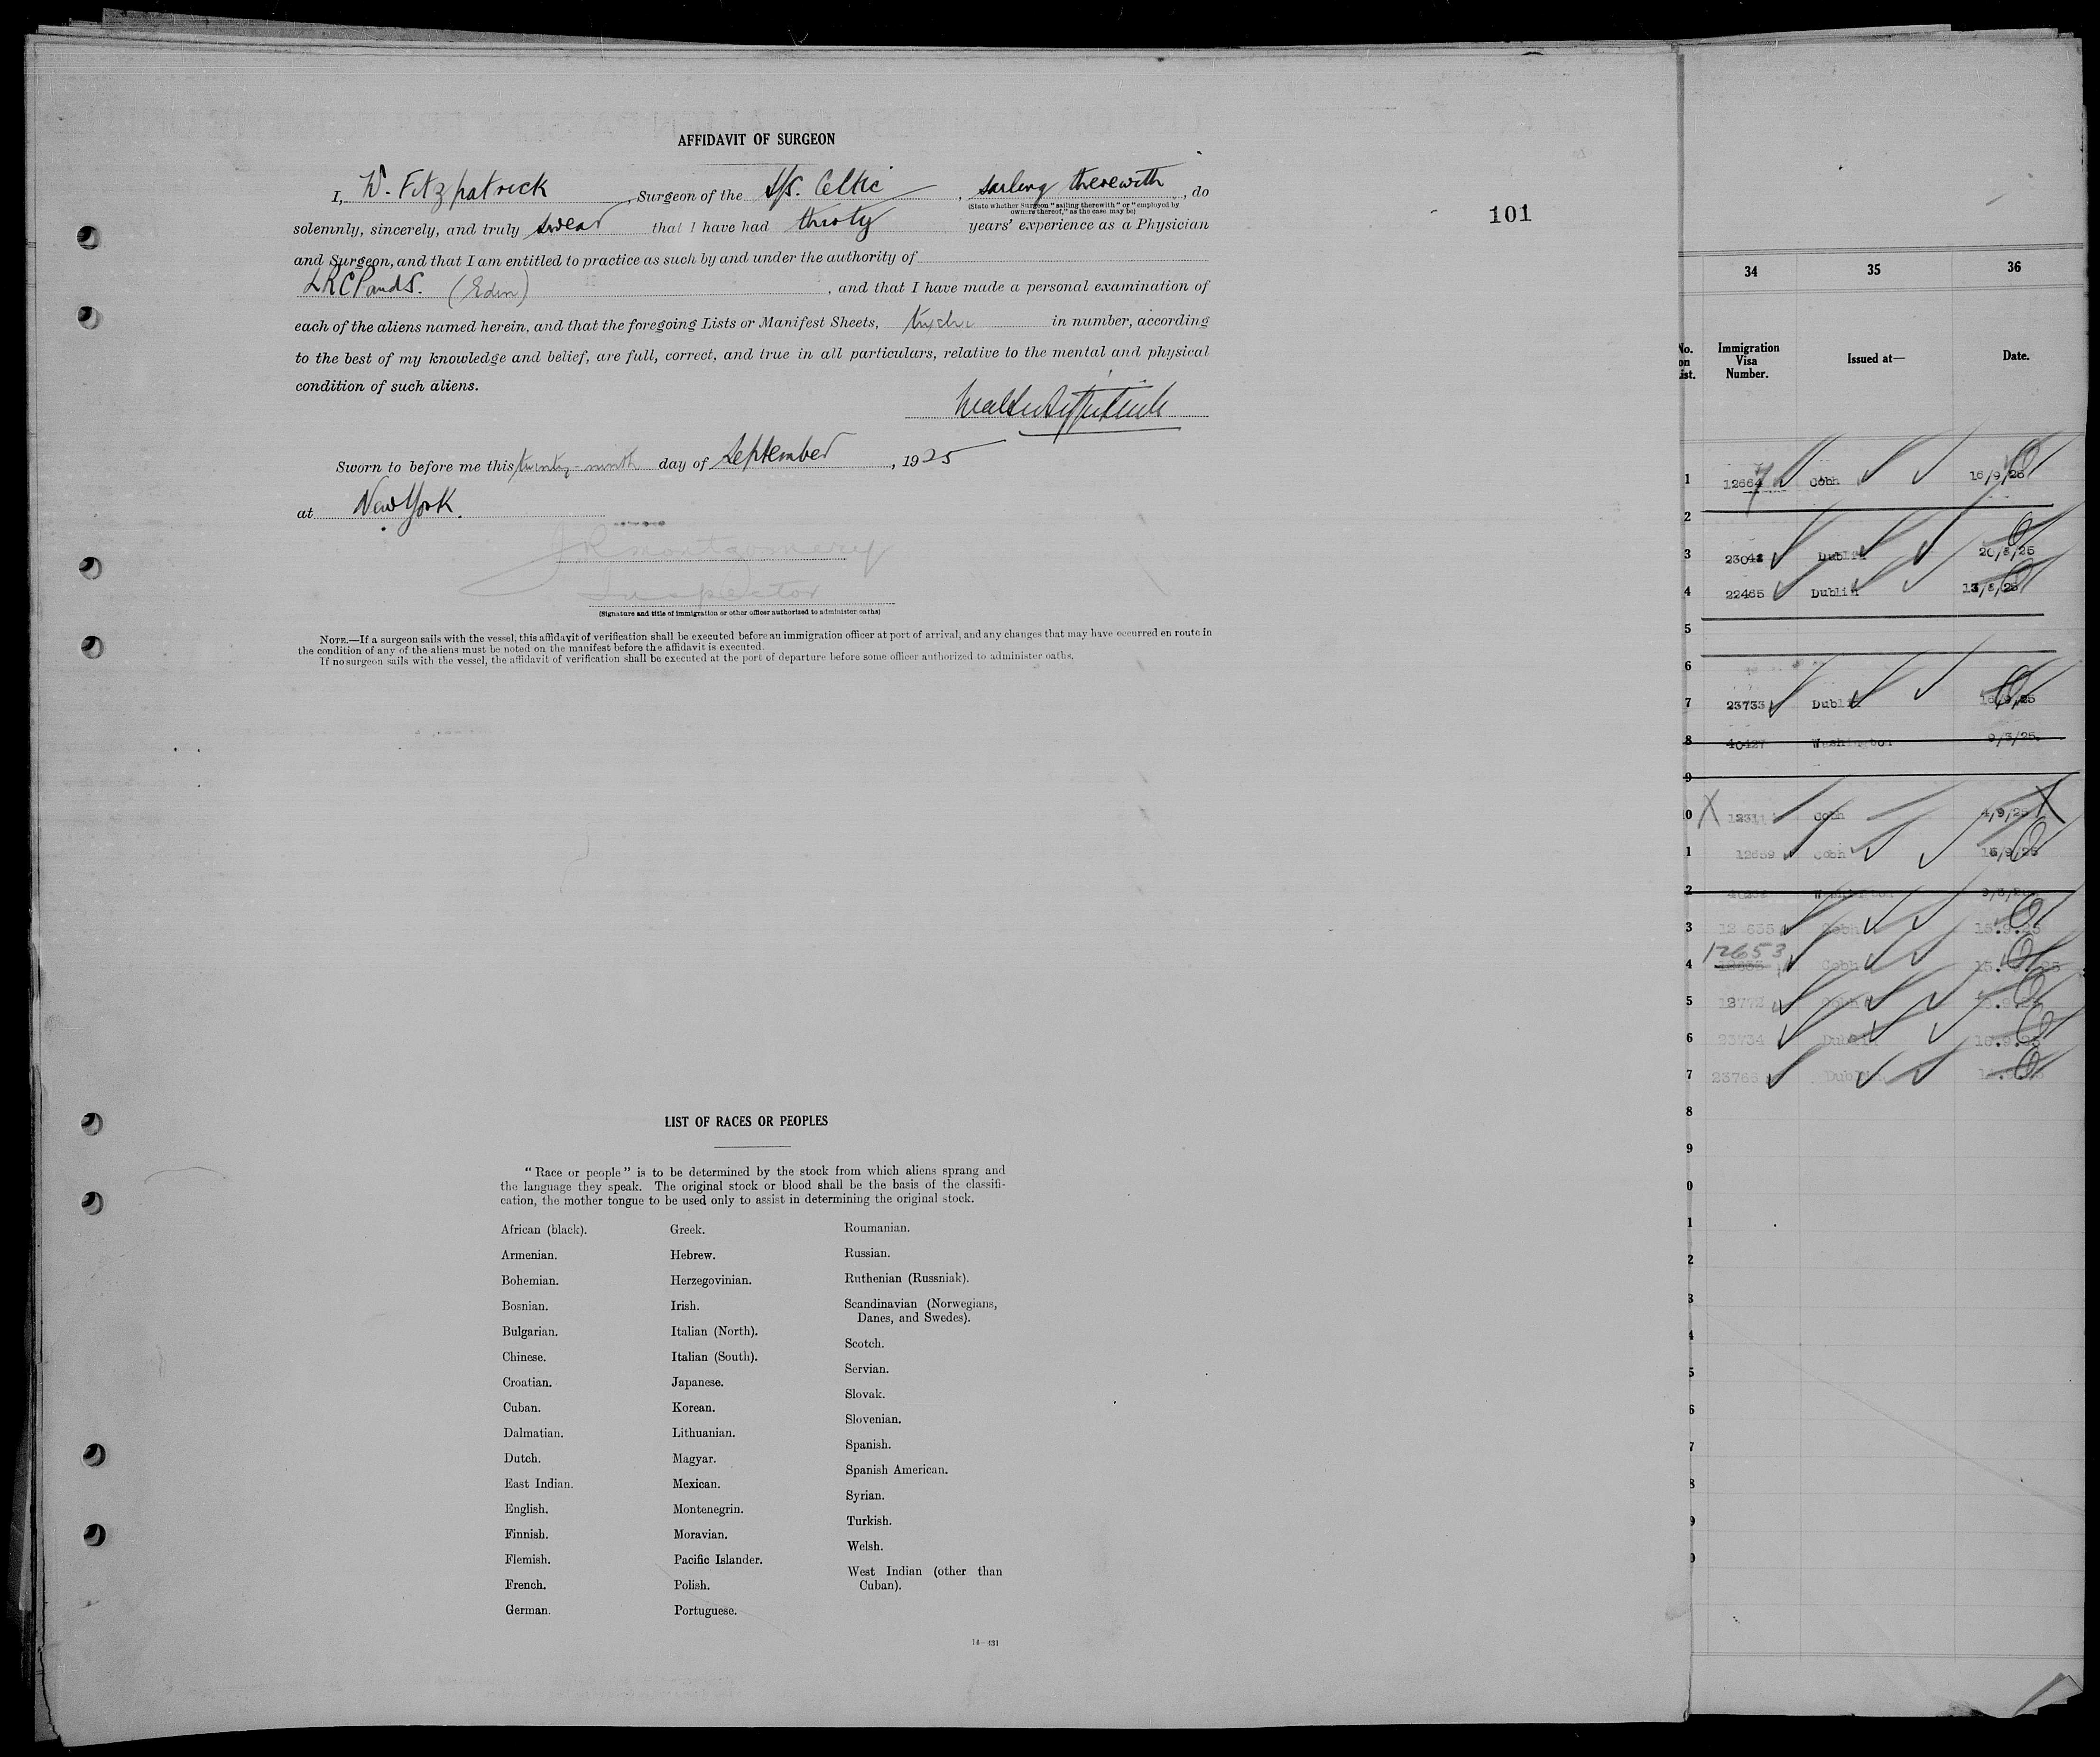 AFFIDAVIT OF SURGEON
I, W. Fitzpatrick, Surgeon of the S/S. Celtic, sailing therewith, do
(State whether Surgeon "sailing therewith" or "employed by
owners thereof," as the case may be)
solemnly, sincerely, and truly swear that I have had thirty years' experience as a Physician
and Surgeon, and that I am entitled to practice as such by and under the authority of
LRCP and S. (Edin), and that I have made a personal examination of
each of the aliens named herein, and that the foregoing Lists or Manifest Sheets, twelve in number, according
to the best of my knowledge and belief, are full, correct, and true in all particulars, relative to the mental and physical
condition of such aliens.
Walter Fitzpatrick
Sworn to before me this twenty-ninth day of September, 1925
at New York.
J R Montgomery
Inspector
(Signature and title of immigration or other officer authorized to administer oaths)
NOTE.—If a surgeon sails with the vessel, this affidavit of verification shall be executed before an immigration officer at port of arrival, and any changes that may have occurred en route in
the condition of any of the aliens must be noted on the manifest before the affidavit is executed.
If no surgeon sails with the vessel, the affidavit of verification shall be executed at the port of departure before some officer authorized to administer oaths.
101
LIST OF RACES OR PEOPLES
"Race or people" is to be determined by the stock from which aliens sprang and
the language they speak. The original stock or blood shall be the basis of the classifi-
cation, the mother tongue to be used only to assist in determining the original stock.
African (black).
Armenian.
Bohemian.
Bosnian.
Bulgarian.
Chinese.
Croatian.
Cuban.
Dalmatian.
Dutch.
East Indian.
English.
Finnish.
Flemish.
French.
German.
Greek.
Hebrew.
Herzegovinian.
Irish.
Italian (North).
Italian (South).
Japanese.
Korean.
Lithuanian.
Magyar.
Mexican.
Montenegrin.
Moravian.
Pacific Islander.
Polish.
Portuguese.
Roumanian.
Russian.
Ruthenian (Russniak).
Scandinavian (Norwegians,
Danes, and Swedes).
Scotch.
Servian.
Slovak.
Slovenian.
Spanish.
Spanish American.
Syrian.
Turkish.
Welsh.
West Indian (other than
Cuban).
14—431
34 35 36
No.
on
list.
Immigration
Visa
Number.
Issued at—
Date.
1 Cobh 16/9/25
2
3 Dublin 20/8/25
4 22465 Dublin 13/8/25
5
6
7 23733 Dublin 16/9/25
8 40427 Washington 9/3/25.
9
0 X Cobh 4/9/25 X
1 12659 Cobh 15/9/25
2 Washington
3 12655 Cobh 15.9.25
12653
4 Cobh
5 Cobh
6 23734 Dublin 16.9.25
7 23765 Dublin
8
9
0
1
2
3
4
5
6
7
8
9
0